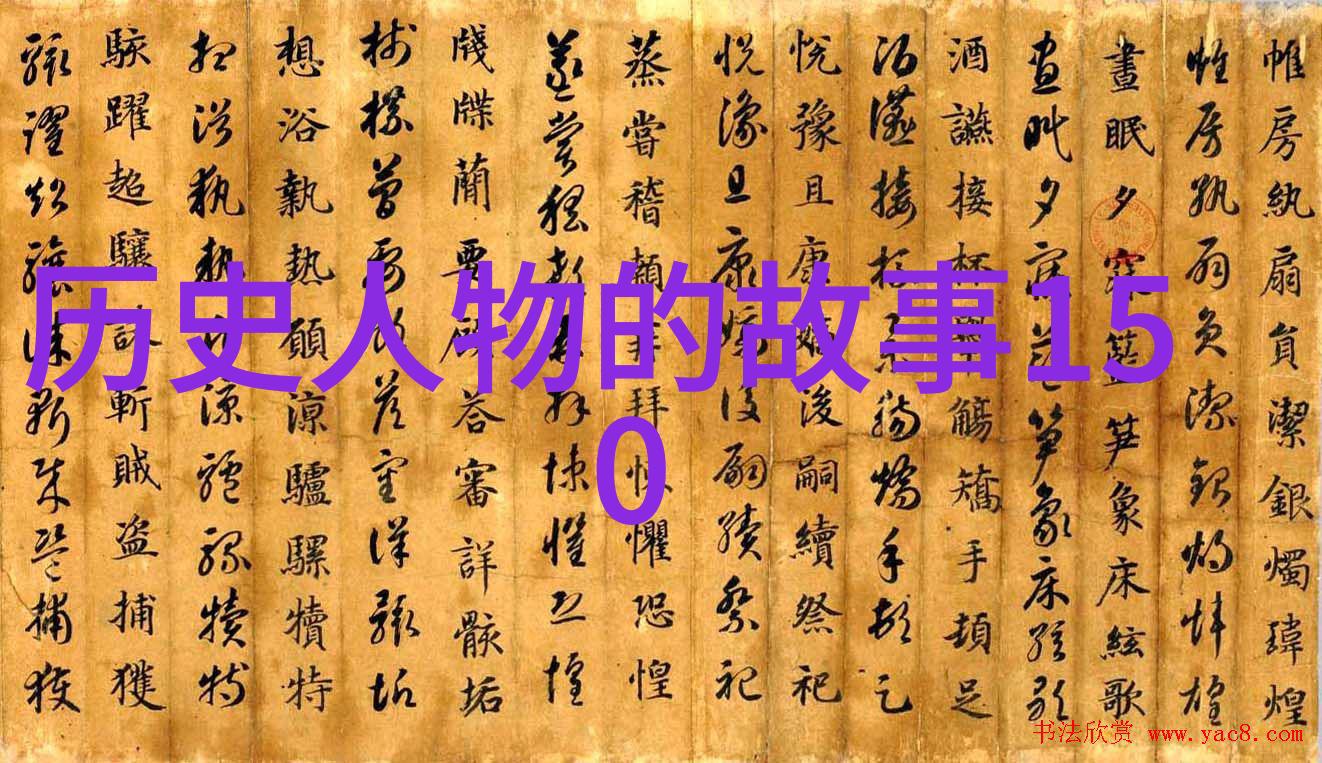 帷房紈扇員潔銀燭瑋煌
帷房紈扇員潔銀燭煒煌
晝眠夕寐藍笋象床絃歌
晝眠夕寐藍笋象床絃歌
酒讌接杯舉觴矯手頓足
酒讌接杯舉觴矯手頓足
悅豫且康嫡後嗣續祭祀
悅豫且康嫡後嗣續祭祀
蒸嘗稽顙再拜悚懼恐惶
蒸嘗稽顙再拜悚懼恐惶
牋牒蕳要顧荅審詳骸垢
牋牒簡要顧荅審詳骸垢
想浴執熱願涼驢騾犢特
想浴執熱願涼驢騾犢特
駭躍超驤誅斬賊盜捕獲
駭躍超驤誅斬賊盜捕獲
历史人物的故事15
0
书法欣赏 www.yac8.com